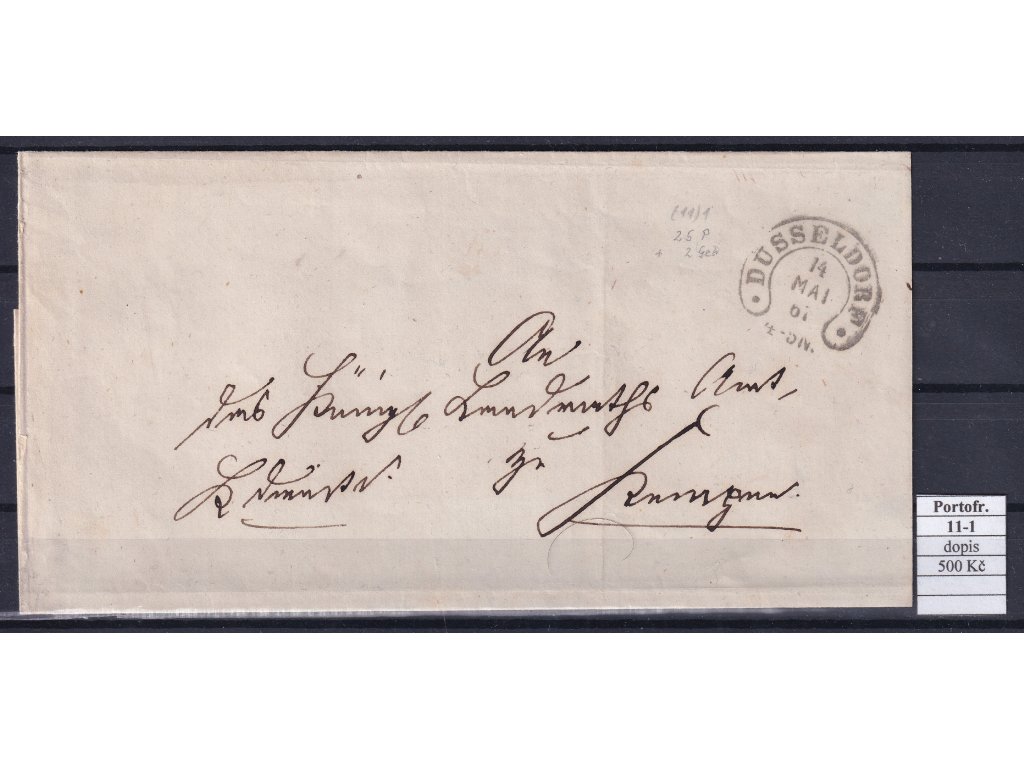 (11)1
25 P
+ 2 Geb
DÜSSELDORF
14
MAI
61
4-5N.
An
das Königl Landraths Amt,
K dienst. zu Kempen.
Portofr.
11-1
dopis
500 Kč